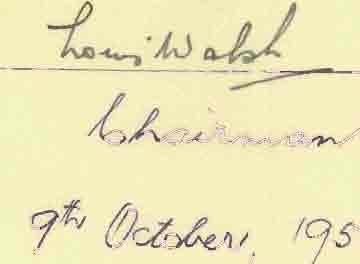 Louis Walsh
Chairman
9th October, 195